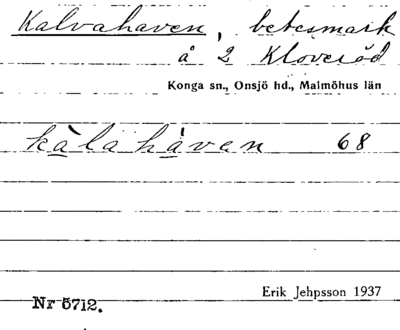 Kalvahaven, betesmark
å 2 Kloveröd
Konga sn., Onsjö hd., Malmöhus län
kàlaháven 68
Erik Jehpsson 1937
Nr 5712.